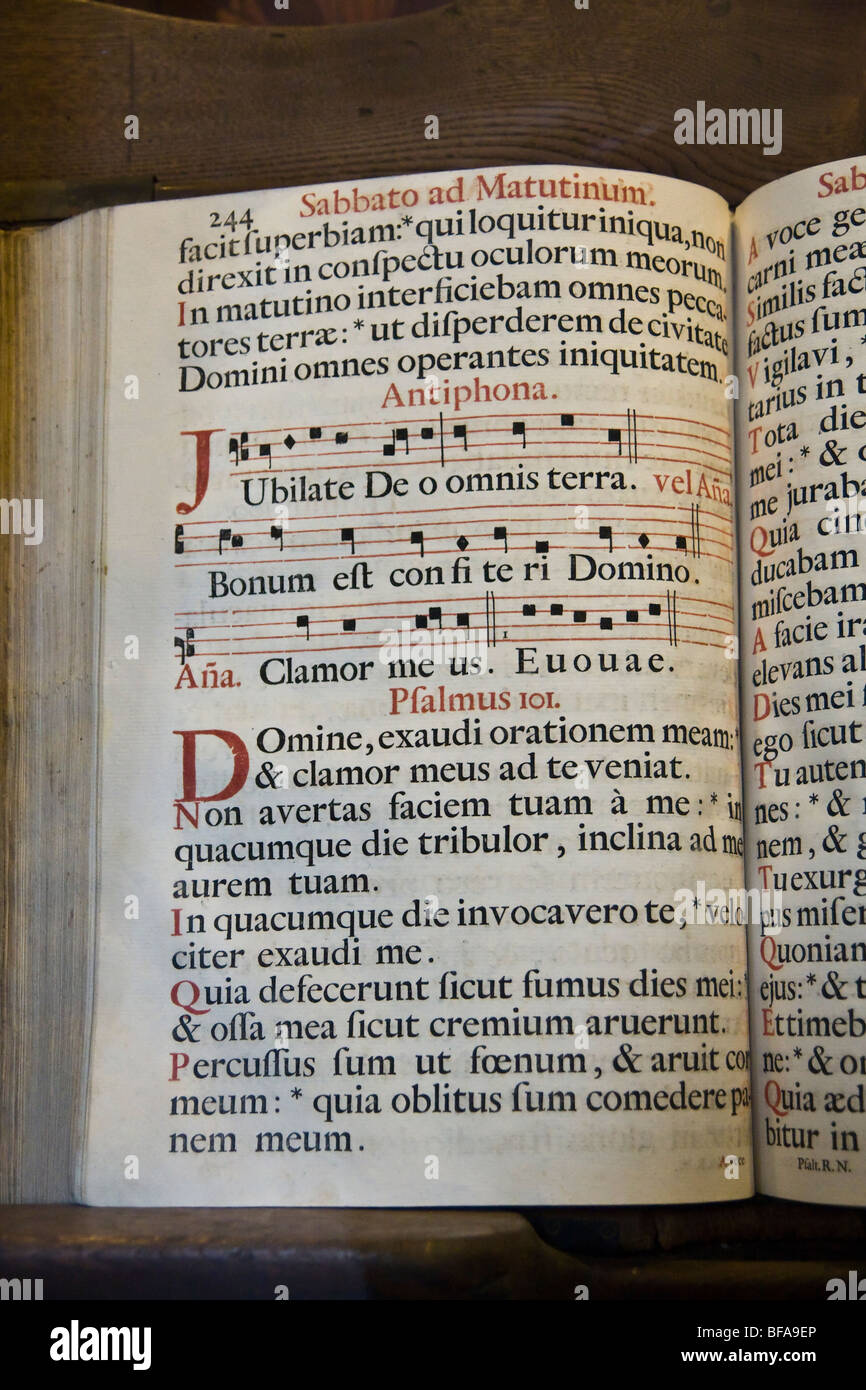 244 Sabbato ad Matutinum.
facit ſuperbiam:* qui loquitur iniqua, non
direxit in conſpectu oculorum meorum.
In matutino interficiebam omnes pecca-
tores terræ:* ut diſperderem de civitate
Domini omnes operantes iniquitatem.
Antiphona.
JUbilate De o omnis terra. vel Aña.
Bonum eſt con fi te ri Domino.
Aña. Clamor me us. E u o u a e.
Pſalmus 101.
DOmine, exaudi orationem meam:*
& clamor meus ad te veniat.
Non avertas faciem tuam à me:* in
quacumque die tribulor, inclina ad me
aurem tuam.
In quacumque die invocavero te,* velo
citer exaudi me.
Quia defecerunt ſicut fumus dies mei:*
& oſſa mea ſicut cremium aruerunt.
Percuſſus ſum ut fœnum, & aruit cor
meum:* quia oblitus ſum comedere pa-
nem meum.
Sab
A voce ge
carni meæ
Similis fact
factus ſum
Vigilavi,*
tarius in t
Tota die
mei:* & 
me jurab
Quia cin
ducabam
miſcebam
A facie ira
elevans al
Dies mei
ego ſicut
Tu autem
nes:* &
nem, &
Tu exurg
pus miſer
Quoniam
ejus:* & t
Et timeb
ne:* & o
Quia æd
bitur in
Pſalt. R. N.
alamy
alamy
Image ID: BFA9EP
www.alamy.com